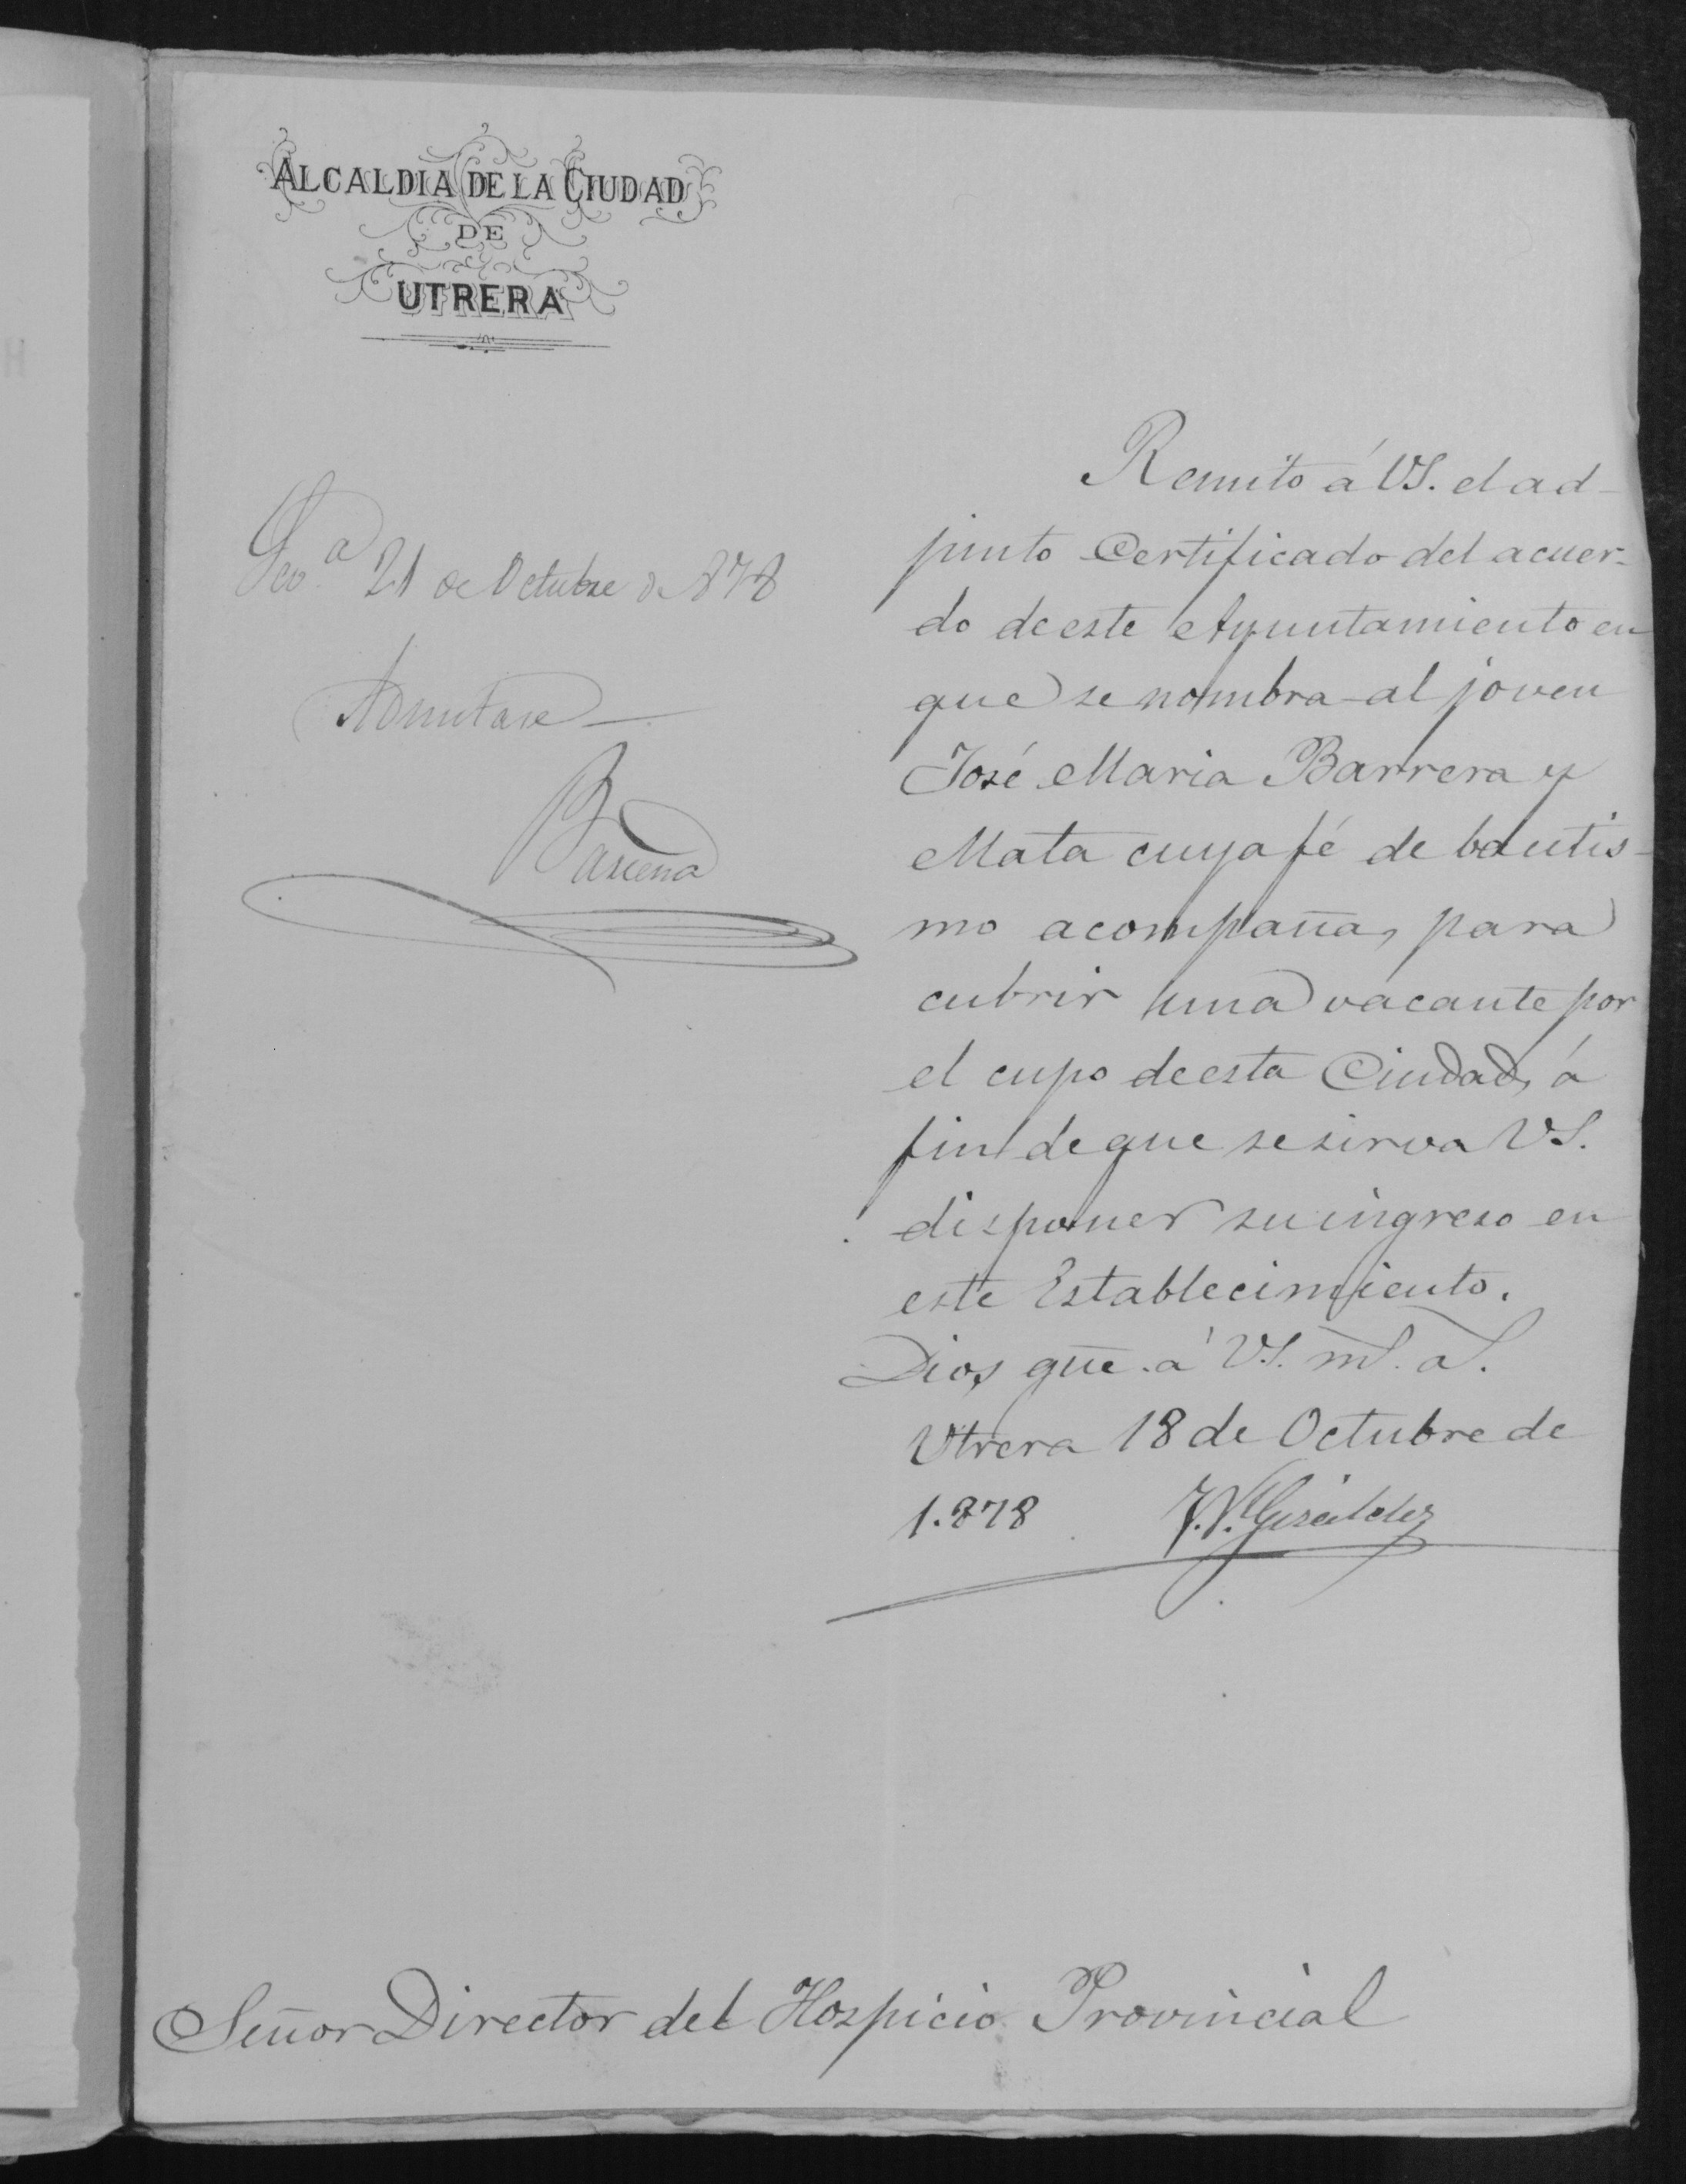 ALCALDIA DE LA CIUDAD
DE
UTRERA
Remito á VS. el ad-
junto Certificado del acuer-
do de este Ayuntamiento en
que se nombra al joven
José Maria Barrera y
Mata cuya fé de bautis-
mo acompaña, para
cubrir una vacante por
el cupo de esta Ciudad, á
fin de que se sirva VS.
disponer su ingreso en
este Establecimiento.
Dios gue. á VS. ms. as.
Utrera 18 de Octubre de
1.878
21 de Octubre de 878
Admitase
Señor Director del Hospicio Provincial